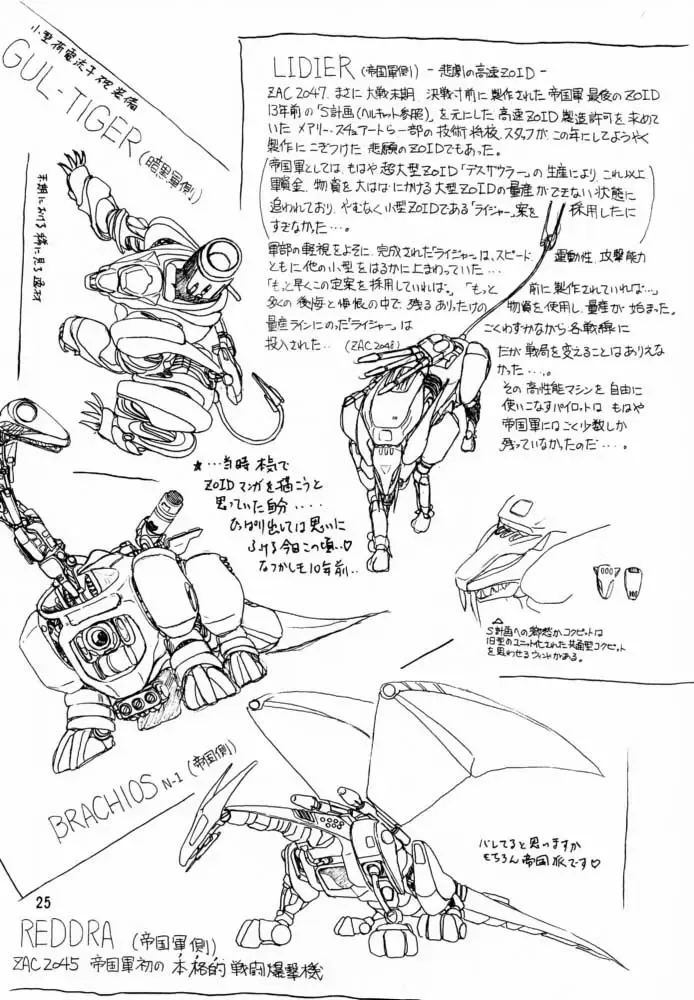 小型荷電粒子砲装備
GUL-TIGER (暗黒軍側)
LIDIER (帝国軍側) - 悲劇の高速ZOID -
ZAC2047. まさに大戦末期 決戦寸前に製作された帝国軍最後のZOID
13年前の「S計画(ヘルキャット参照)」を元にした高速ZOID製造許可を求めて
いたメアリー.スチュアートら一部の技術将校、スタッフが、この年にしてようやく
製作にこぎつけた悲願のZOIDでもあった。
帝国軍としては、もはや超大型ZOID「デスザウラー」の生産により、これ以上
軍資金、物資を大はばにかける大型ZOIDの量産ができない状態に
追われており、やむなく小型ZOIDである「ライジャー」案を 採用したに
すぎなかった…。
軍部の軽視をよそに、完成された「ライジャー」は、スピード、運動性、攻撃能力
ともに他の小型をはるかに上まわっていた…
「もっと早くこの定案を採用していれば」。「もっと 前に製作されていれば…」
多くの後悔と悔恨の中で、残るありったけの 物資を使用し、量産が始まった。
量産ラインにのった「ライジャー」は ごくわずかながら各戦線に
投入された.. (ZAC2048)
だが戦局を変えることはありえな
かった…。
その高性能マシンを自由に
使いこなすパイロットは もはや
帝国軍にはごく少数しか
残っていなかったのだ…。
★…当時 本気で
ZOIDマンガを描こうと
思っていた自分....
ひっぱり出しては思いに
ふける今日この頃..♡
なつかしも10年前..
S計画への郷愁かコクピットは
旧型のユニット化された共通型コクピット
を思わせるウィンドがある。
BRACHIOS N-1 (帝国側)
バレてると思いますが
もちろん帝国派です♡
25
REDDRA (帝国軍側)
ZAC2045 帝国軍初の本格的戦闘爆撃機